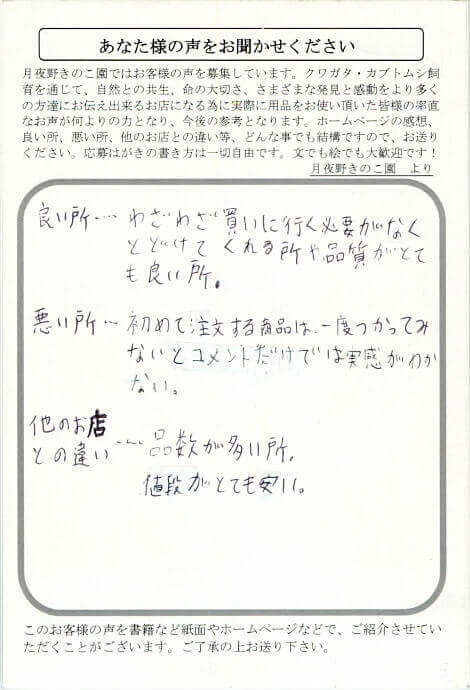 あなた様の声をお聞かせください
月夜野きのこ園ではお客様の声を募集しています。クワガタ・カブトムシ飼
育を通じて、自然との共生、命の大切さ、さまざまな発見と感動をより多く
の方達にお伝え出来るお店になる為に実際に用品をお使い頂いた皆様の率直
なお声が何よりの力となり、今後の参考となります。ホームページの感想、
良い所、悪い所、他のお店との違い等、どんな事でも結構ですので、お送り
ください。応募はがきの書き方は一切自由です。文でも絵でも大歓迎です！
月夜野きのこ園　より
良い所…わざわざ買いに行く必要がなく
とどけてくれる所や品質がとて
も良い所。
悪い所…初めて注文する商品は、一度つかってみ
ないとコメントだけでは実感がわか
ない。
他のお店
との違い……品数が多い所。
値段がとても安い。
このお客様の声を書籍など紙面やホームページなどで、ご紹介させてい
ただくことがございます。ご了承の上お送り下さい。